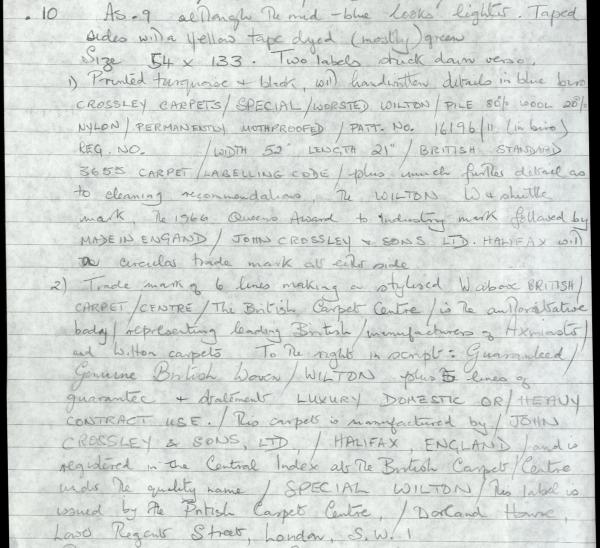 .10 As .9 although the mid-blue looks lighter. Taped
sides with a yellow tape dyed (mostly) green
Size 54 x 133. Two labels stuck down verso,
1) Printed turquoise + black, with handwritten details in blue biro
CROSSLEY CARPETS/SPECIAL/WORSTED WILTON/PILE 80% WOOL 20%
NYLON/PERMANENTLY MOTHPROOFED/PATT. NO. 16196/11 (in biro)
REG. NO. /WIDTH 52" LENGTH 21"/BRITISH STANDARD
3655 CARPET/LABELLING CODE/plus much further detail as
to cleaning recommendations, the WILTON W + shuttle
mark, the 1966 Queens Award to Industry mark followed by
MADE IN ENGAND/JOHN CROSSLEY & SONS LTD. HALIFAX with
circular trade mark at either side
2) Trade mark of 6 lines making a stylised W above BRITISH/
CARPET/CENTRE/The British Carpet Centre/is the authoritative
body/representing leading British/manufacturers of Axminster/
and Wilton carpets To the right in script: Guaranteed/
Genuine British Woven/WILTON plus 5 lines of
guarantee + statements LUXURY DOMESTIC OR/HEAVY
CONTRACT USE./This carpet is manufactured by/JOHN
CROSSLEY & SONS, LTD,/HALIFAX ENGLAND/and is
registered in the Central Index at The British Carpet/Centre
under the quality name/SPECIAL WILTON/This label is
issued by the British Carpet Centre,/Dorland House,
Lower Regent Street, London, S.W.1